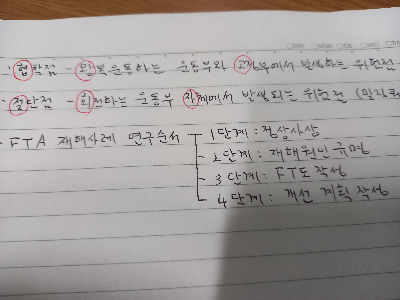 · 협착점 - 왕복운동하는 운동부와 고정부에서 발생하는 위험점
· 절단점 - 회전하는 운동부 자체에서 발생되는 위험점 (밀링커
· FTA 재해사례 연구순서 1단계 : 정상사상
2단계 : 재해원인 규명
3단계 : FT도 작성
4단계 : 개선 계획 작성